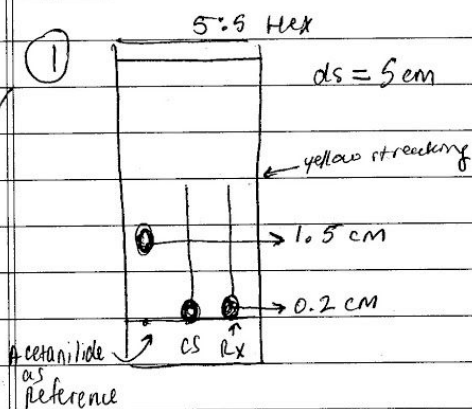 5:5 Hex
1
ds = 5 cm
yellow streaking
1.5 cm
0.2 cm
Acetanilide
as
reference
CS
RX